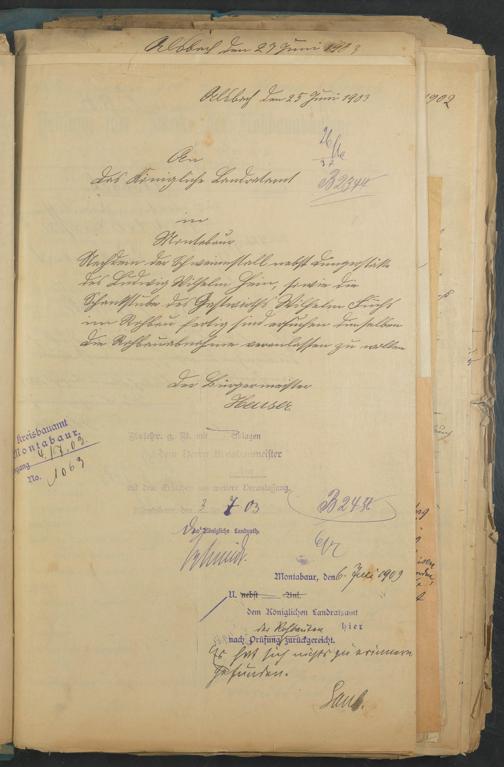 Alsbach den 27 Juni 1903
Alsbach den 25 Juni 1903
1902
An
das Königliche Landratamt
in
Montabaur
Nachdem der Schweinestall nebst Dungerstätte
des Ludwig Wilhelm Hein, sowie die
Schankstube des Gastwirths Wilhelm Fuchs
im Rohbau fertig sind ersuchen dieselben
die Rohbauabnahme veranlassen zu wollen
Der Bürgermeister
Heuser
Kreisbauamt
Montabaur,
4/7.03.
No. 1063
g. R. mit Anlagen
dem Herrn Kreisbaumeister
mit dem Ersuchen um weitere Veranlassung
Montabaur den 3 7 03
Der Königliche Landrath.
Schmidt.
Montabaur, den 6. Juli 1903
U. nebst Anl.
dem Königlichen Landratsamt
des Rohbaues hier
nach Prüfung zurückgereicht.
Es hat sich nichts zu erinnern
gefunden.